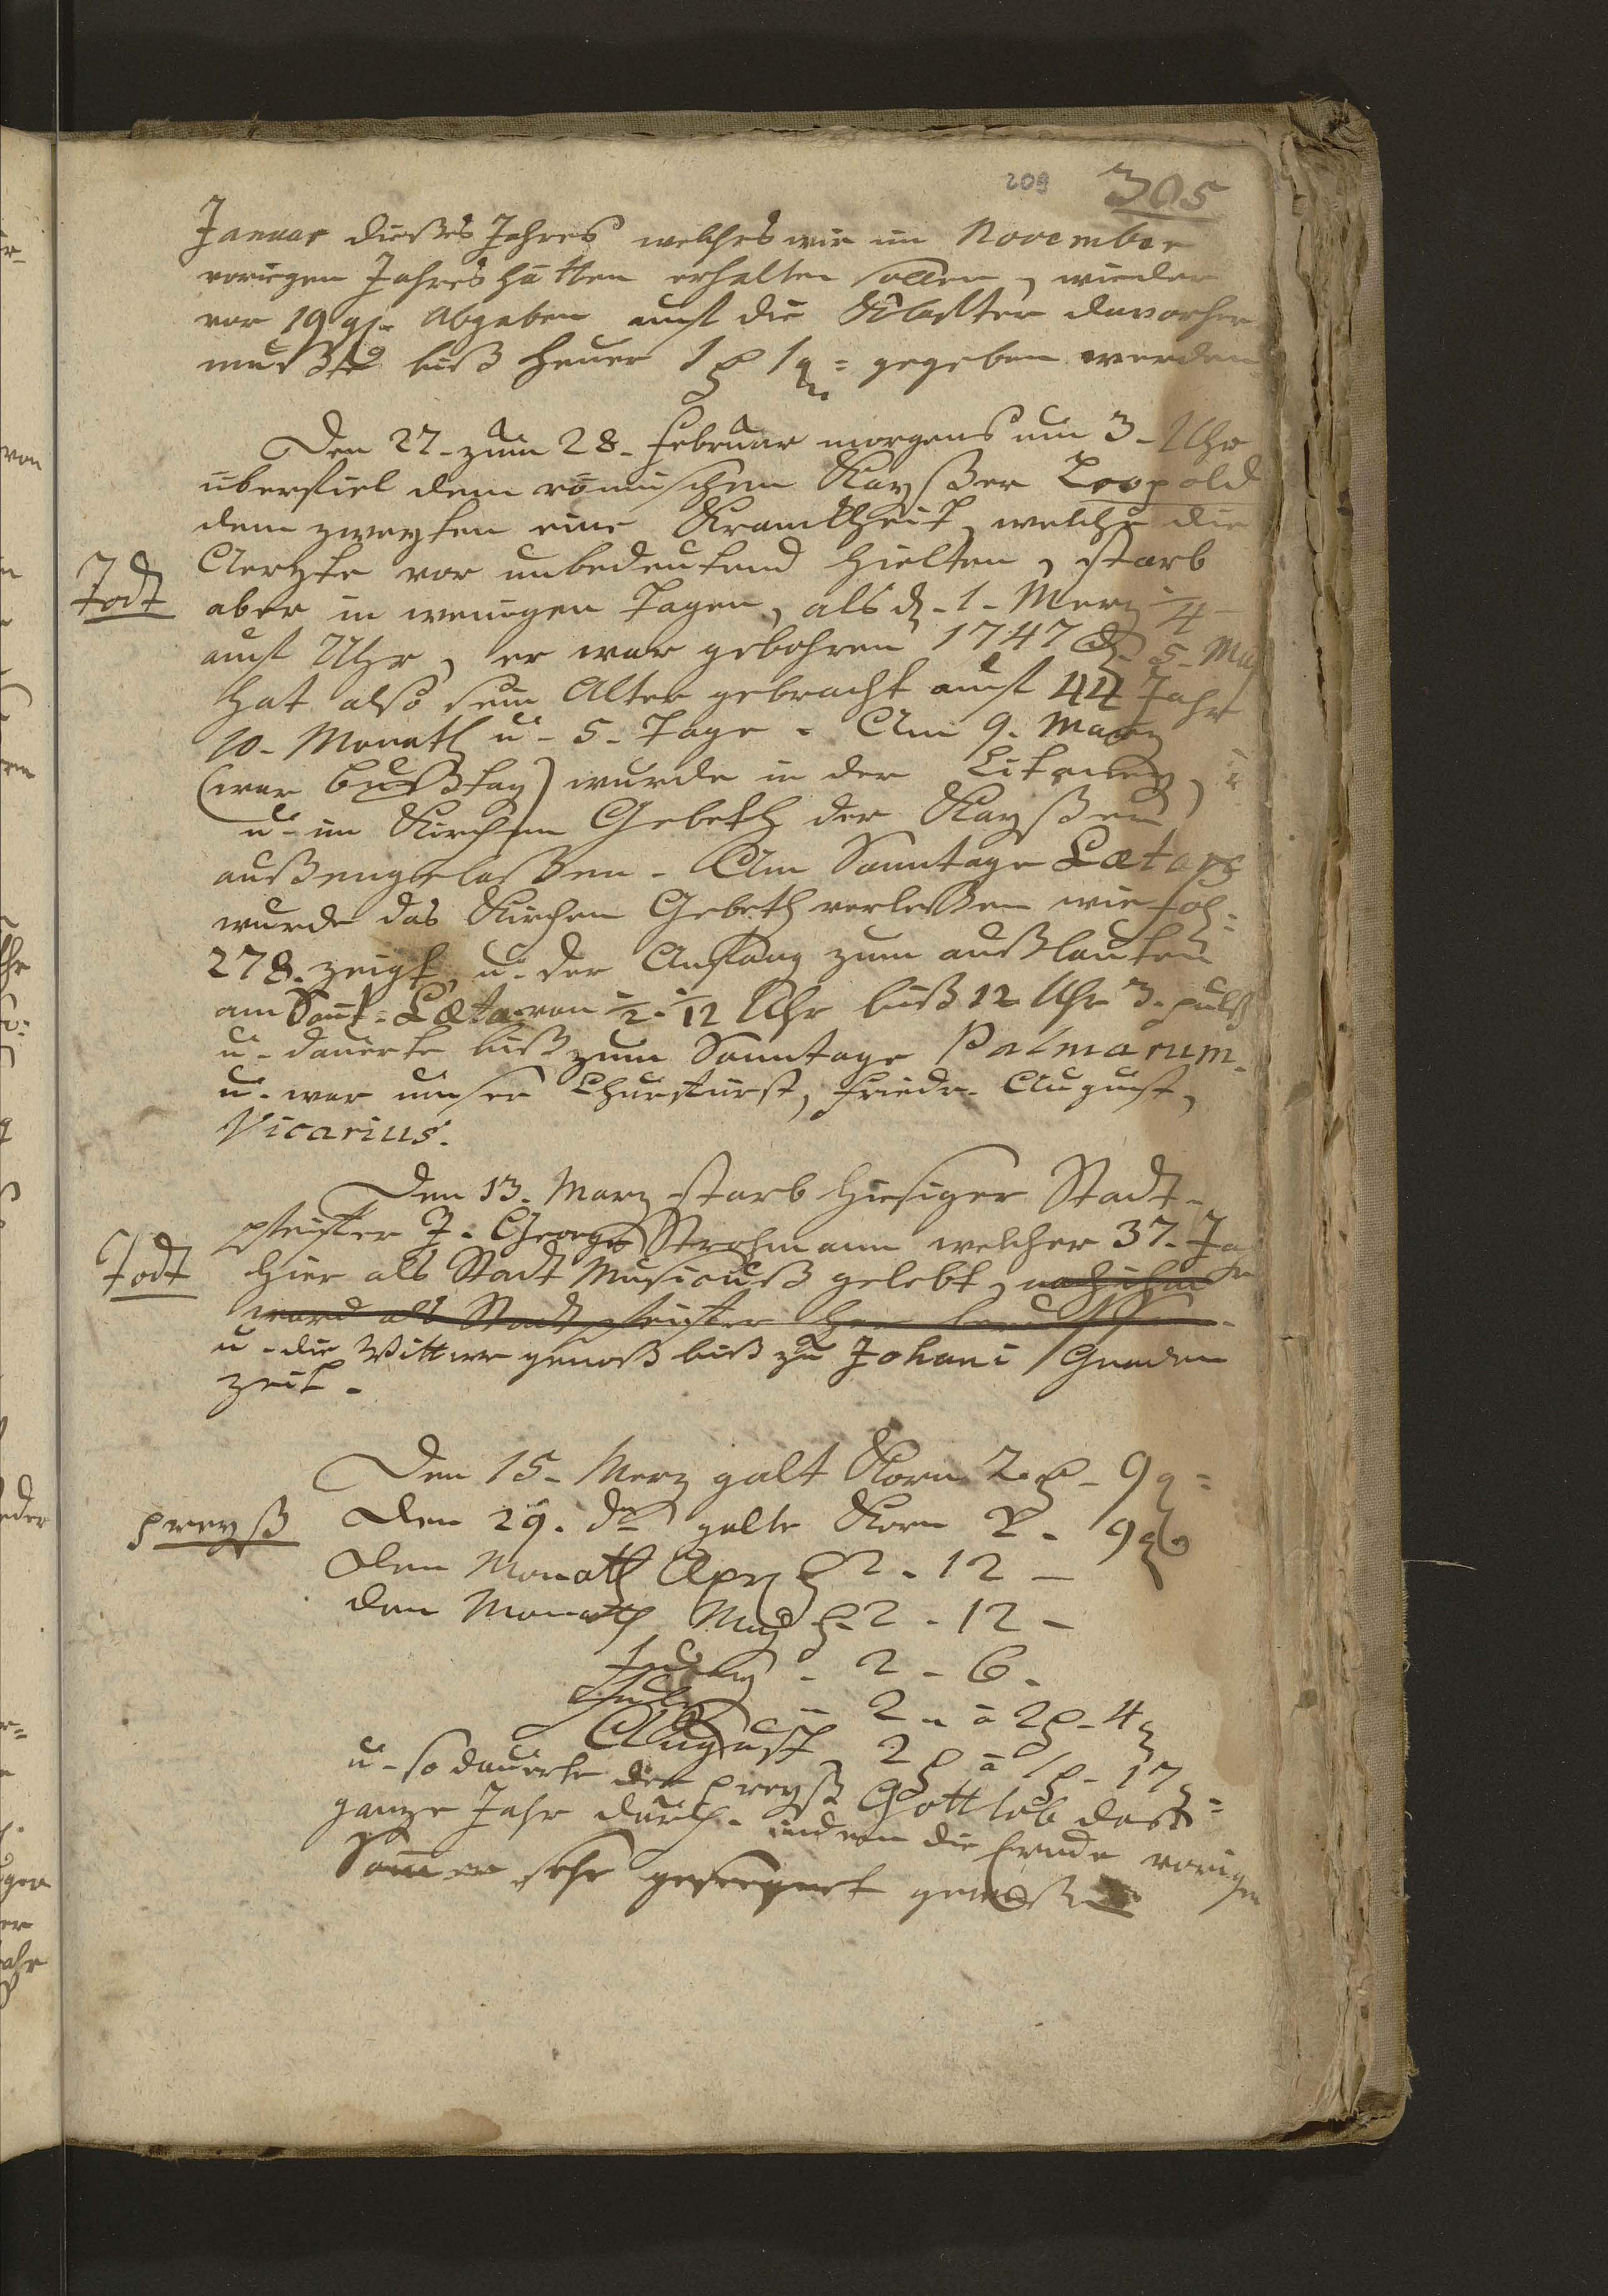 209 305
Januar dießes Jahres welches wir im November
vorigen Jahres hätten erhalten sollen, wieder
vor 19 gr. Abgaben auf die Klafter davorher
mußte biß heuer 1 1 gegeben werden
Den 27. zum 28. Februar morgens um 3. Uhr
überfiel dem römischen Kayßer Leopold
dem zweyten eine Kranckheit, welche die
Aerzte vor unbedeutend hielten, starb
Todt
aber in wenigen Tagen, als d. 1. Merz 4
auf Uhr, er war gebohren 1747 d. 5. May
hat also sein Alter gebracht auf 44 Jahr
10. Monath u. 5. Tage. Am 9. Marz
(war Bußtag) wurde in der Litaney,
u. im Kirchen Gebeth der Kayßer
außengelaßen. Am Sonntage Lætare
wurde das Kirchen Gebeth verleßen wie fol.
278. zeigt, u. der Anfang zum außlauten
am Sont. Læta. von 1/2. 12 Uhr biß 12 Uhr 3. pulß
u. dauerte biß zum Sonntage Palmarum.
u. war unser Churfürst, Friedr. August,
Vicarius.
Den 13. Marz starb hiesiger Stadt-
pfeifer J. George Strohmann welcher 37. Jahr
Todt
hier als Stadt Musicuß gelebt, nach ihm
ward als Stadtpfeifer Herr
u. die Wittwe genoß biß zu Johani Gnaden
zeit.
Den 15. Merz galt Korn 2 9
preyß
Den 29. do galte Korn 2. 9
Den Monath Apr 2. 12 –
den Monath May 2. 12 –
2 – 6.
2 à 2 4
August 2 à 1 17
u. so dauerte der preyß Gottlob daß
ganze Jahr durch. indem die Ernde vorigen
Sommer sehr geseegnet geweßen